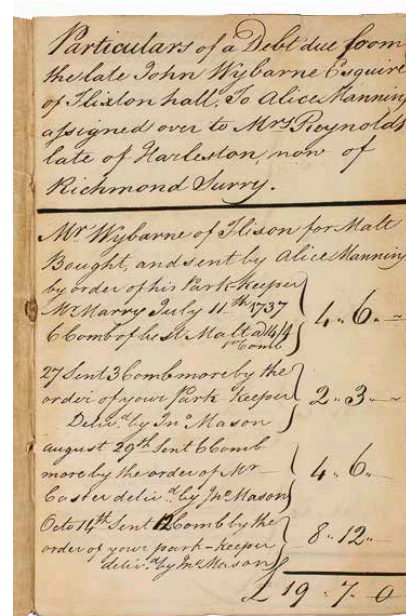 Particulars of a Debt due from
the late John Wybarne Esquire
of Flixton hall, To Alice Manning
assigned over to Mrs Reynolds
late of Harleston, now of
Richmond Surry.
Mr Wybarne of Flixon for Malt
Bought, and sent by Alice Manning
by order of his Park-keeper
Mr Marry July 11th 1737
6 Comb of best Malt a 14/4
pr Comb
4 " 6 " ~
27 Sent 3 Comb more by the
order of your Park Keeper
Delivd by Jno Mason
2 " 3 " ~
august 29th Sent 6 Comb
more by the order of Mr
Caster delivd by Jno Mason
4 " 6 "
Octo 14th Sent 12 Comb by the
order of your park-keeper
delivd by Jno Mason
8 " 12 "
£ 19 " 7 " 0